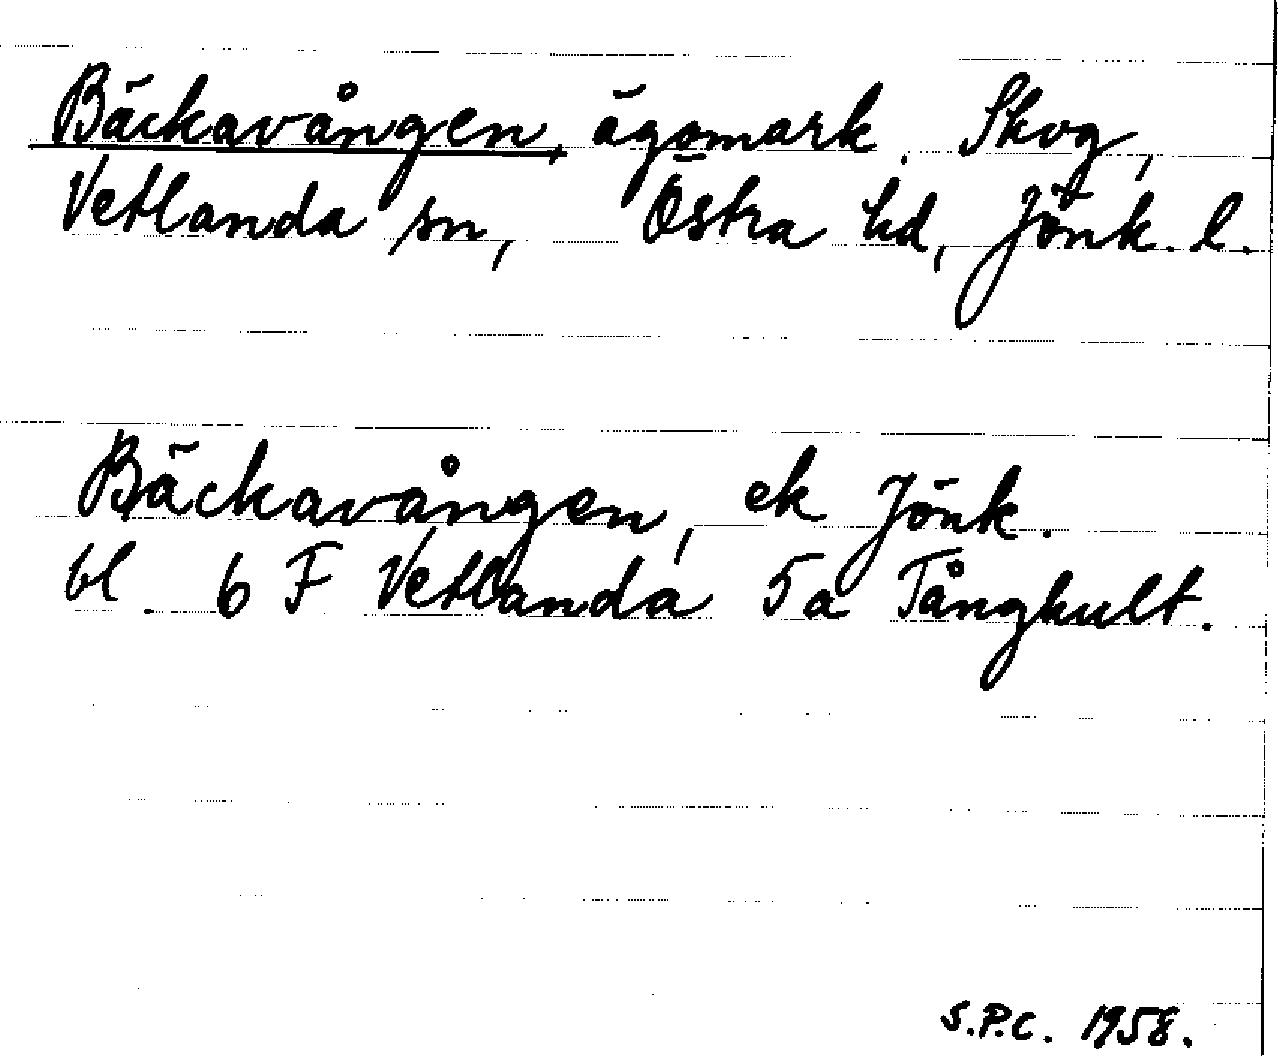 Bäckavången, ägomark. Skog,
Vetlanda sn, Östra hd, Jönk. l.
Bäckavången, ek Jönk.
bl. 6 F Vetlanda 5a Tångkult.
S.P.C. 1958.